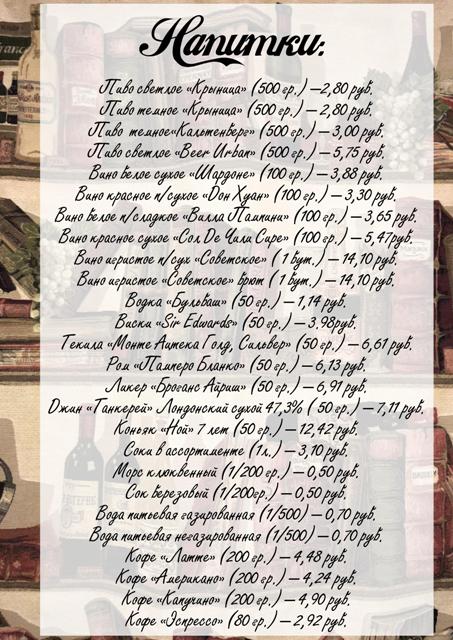 Напитки:
Пиво светлое «Крыница» (500 гр.) – 2,80 руб.
Пиво темное «Крыница» (500 гр.) – 2,80 руб.
Пиво темное«Кальтенберг» (500 гр.) – 3,00 руб.
Пиво светлое «Beer Urban» (500 гр.) – 5,75 руб.
Вино белое сухое «Шардоне» (100 гр.) – 3,88 руб.
Вино красное п/сухое «Дон Хуан» (100 гр.) – 3,30 руб.
Вино белое п/сладкое «Вилла Пампини» (100 гр.) – 3,65 руб.
Вино красное сухое «Сол Де Чили Сире» (100 гр.) – 5,47руб.
Вино игристое п/сух «Советское» ( 1 бут.) – 14,10 руб.
Вино игристое «Советское» брют ( 1 бут.) – 14,10 руб.
Водка «Бульбаш» (50 гр.) – 1,14 руб.
Виски «Sir Edwards» (50 гр.) – 3,98руб.
Текила «Монте Ацтека Голд, Сильвер» (50 гр.) – 6,61 руб.
Ром «Памперо Бланко» (50 гр.) – 6,13 руб.
Ликер «Броганс Айриш» (50 гр.) – 6,91 руб.
Джин «Танкерей» Лондонский сухой 47,3% ( 50 гр.) – 7,11 руб.
Коньяк «Ной» 7 лет (50 гр.) – 12,42 руб.
Соки в ассортименте (1л.) – 3,10 руб.
Морс клюквенный (1/200 гр.) – 0,50 руб.
Сок березовый (1/200гр.) – 0,50 руб.
Вода питьевая газированная (1/500) – 0,70 руб.
Вода питьевая негазированная (1/500) – 0,70 руб.
Кофе «Латте» (200 гр.) – 4,48 руб.
Кофе «Американо» (200 гр.) – 4,24 руб.
Кофе «Капучино» (200 гр.) – 4,90 руб.
Кофе «Эспрессо» (80 гр.) – 2,92 руб.